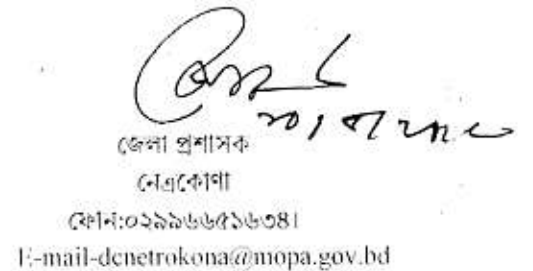 জেলা প্রশাসক
নেত্রকোণা
ফোন:০২৯৯৬৬৫১৬৩৪।
E-mail-dcnetrokona@mopa.gov.bd